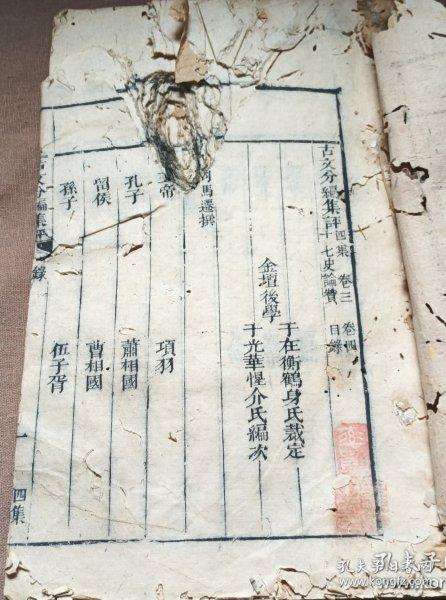 古文分編集評四集 卷三 卷四
十七史論贊 目錄
金壇後學
于在衡鶴身氏裁定
于光華惺介氏編次
司馬遷撰
帝 項羽
孔子 蕭相國
留侯 曹相國
孫子 伍子胥
古文分編集評 錄 一 四集
孔夫子舊書網
www.kongfz.com